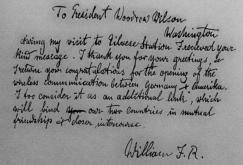 To President Woodrow Wilson
Washington
During my visit to Eilvese Station I received your
kind message. I thank you for your greetings, &
return you congratulations for the opening of the
wireless communication between Germany & Amerika.
I too consider it as an additional link, which
will bind our two countries in mutual
friendship & closer intercourse.
William I.R.